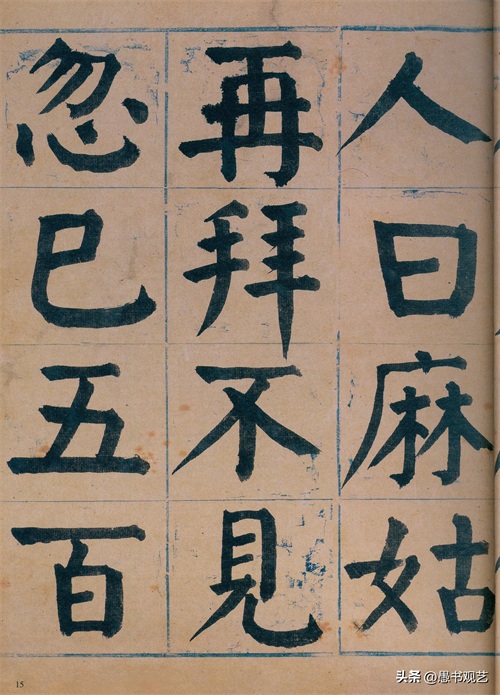 人曰麻姑
再拜不見
忽已五百
15
头条@愚书观艺